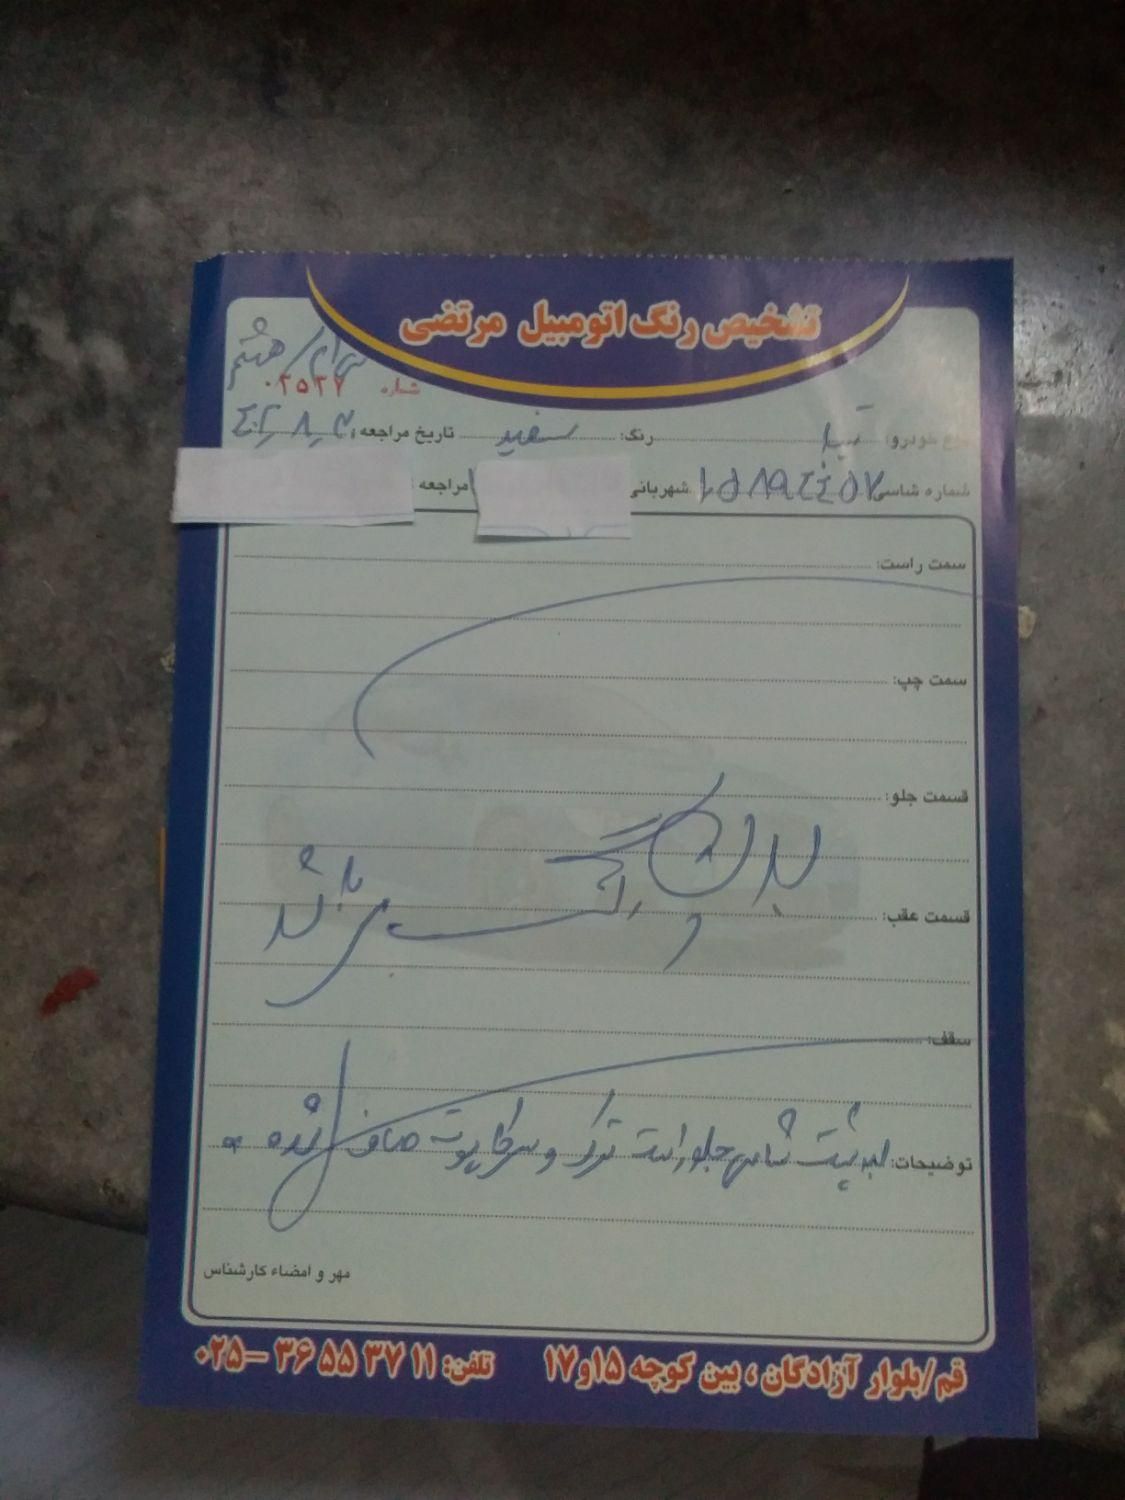 تشخیص رنگ اتومبیل مرتضی
شماره ۰۲۵۲۷
نوع خودرو: تیبا رنگ: سفید تاریخ مراجعه:
شماره شاسی ۱۰۵۸۹۴۴۵۷ شهربانی مراجعه
سمت راست:
سمت چپ:
قسمت جلو:
بدون رنگ
قسمت عقب:
می باشد
سقف:
توضیحات: لبه پشت شاسی جلو راست ترک و سر کاپوت صاف شده
مهر و امضاء کارشناس
قم/بلوار آزادگان ، بین کوچه ۱۵و۱۷ تلفن: ۱۱ ۳۷ ۵۵ ۳۶ –۰۲۵